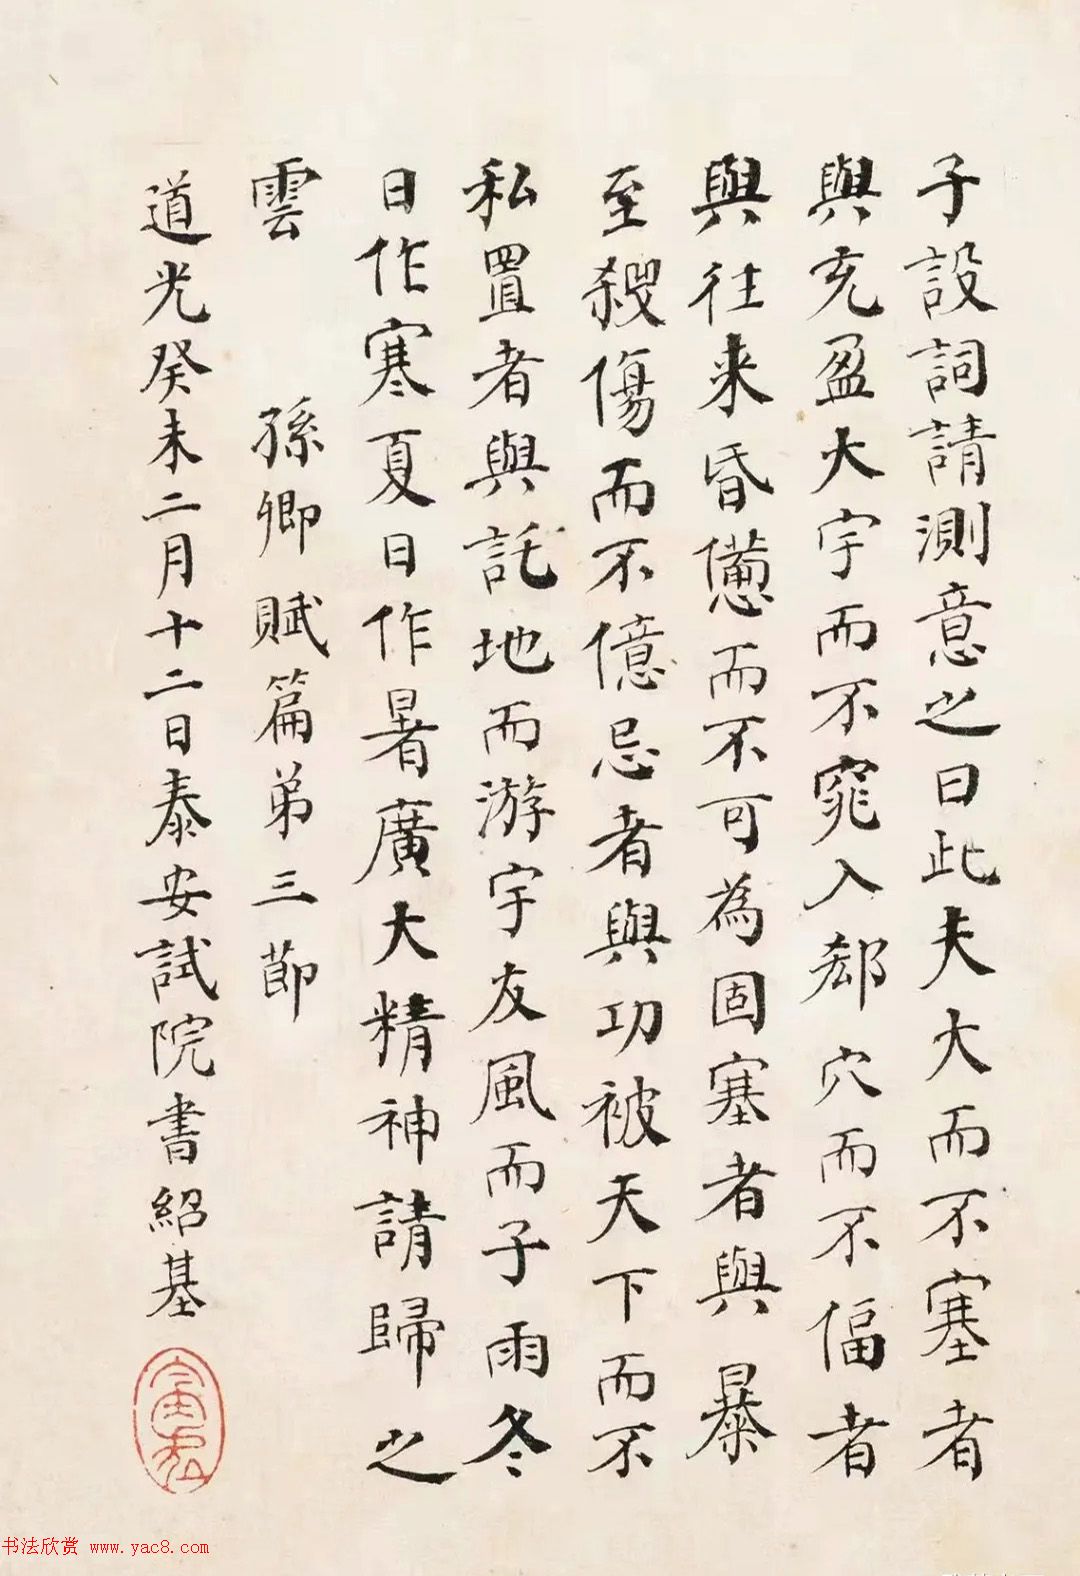 子設詞請測意之曰此夫大而不塞者
與充盈大宇而不窕入郄穴而不偪者
與往来昏憊而不可為固塞者與暴
至殺傷而不億忌者與功被天下而不
私置者與託地而游宇友風而子雨冬
日作寒夏日作暑廣大精神請歸之
雲 孫卿賦篇弟三節
道光癸未二月十二日泰安試院書紹基
书法欣赏 www.yac8.com